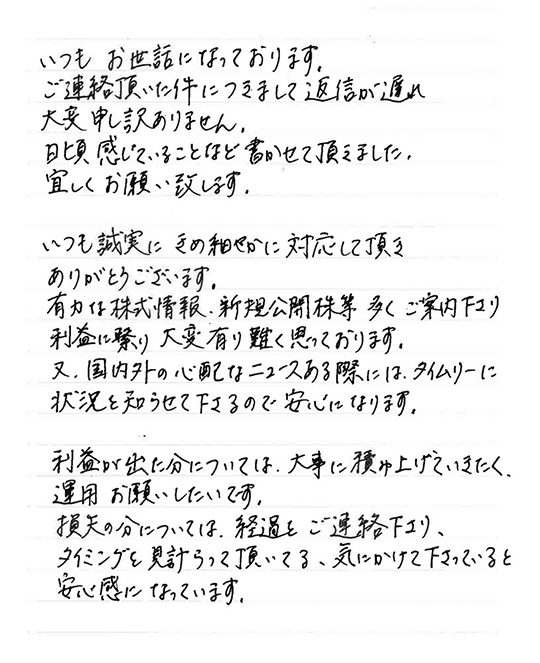 いつも お世話になっております。
ご連絡頂いた件につきまして返信が遅れ
大変申し訳ありません。
日頃感じていることなど書かせて頂きました。
宜しくお願い致します。
いつも誠実にきめ細やかに対応して頂き
ありがとうございます。
有力な株式情報、新規公開株等 多くご案内下さり
利益に繋り大変有り難く思っております。
又、国内外の心配なニュースある際には、タイムリーに
状況を知らせて下さるので安心になります。
利益が出た分については、大事に積み上げていきたく、
運用お願いしたいです。
損失の分については、経過をご連絡下さり、
タイミングを見計らって頂いてる、気にかけて下さっていると
安心感になっています。